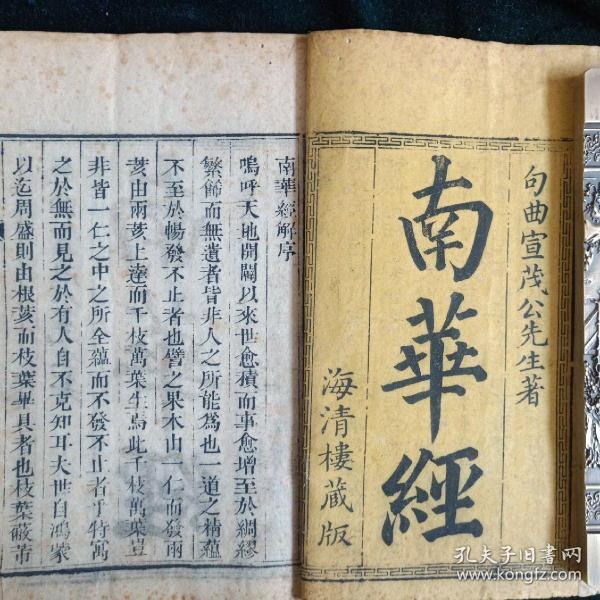 句曲宣茂公先生著
南華經
海清樓藏版
南華經解序
嗚呼天地開闢以來世愈積而事愈增至於綢繆
繁飾而無遺者皆非人之所能為也一道之精蘊
不至於暢發不止者也譬之果木由一仁而發兩
荄由兩荄上達而千枝萬葉生焉此千枝萬葉豈
非皆一仁之中之所全蘊而不發不止者乎特萬
之於無而見之於有人自不克知耳夫世自鴻濛
以迄周盛則由根荄而枝葉畢具者也枝葉蔽芾
孔夫子旧书网
www.kongfz.com